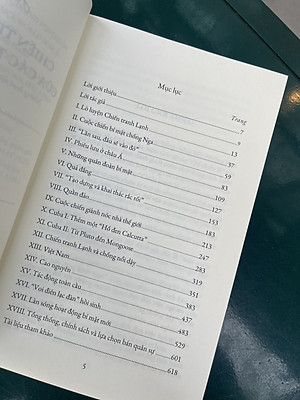 Mục lục
Trang
Lời giới thiệu 7
Lời tác giả 9
I. Lò luyện Chiến tranh Lạnh 13
II. Cuộc chiến bí mật chống Nga 37
III. "Lần sau, đầu sẽ vào đó" 59
IV. Phiêu lưu ở châu Á 83
V. Những quân đoàn bí mật 109
VI. Quả đắng 127
VII. "Tạo dựng và khai thác rắc rối" 153
VIII. Quần đảo 183
IX. Cuộc chiến giành nóc nhà thế giới 213
X. Cuba I: Thêm một "Hố đen Calcutta" 247
XI. Cuba II: Từ Pluto đến Mongoose 283
XII. Chiến tranh Lạnh và chống nổi dậy 319
XIII. Việt Nam 351
XIV. Cao nguyên 383
XV. Tác động toàn cầu 437
XVI. "Voi điên lạc đàn" hồi sinh 483
XVII. Làn sóng hoạt động bí mật mới 529
XVIII. Tổng thống, chính sách và lựa chọn bán quân sự 601
Tài liệu tham khảo 618
5